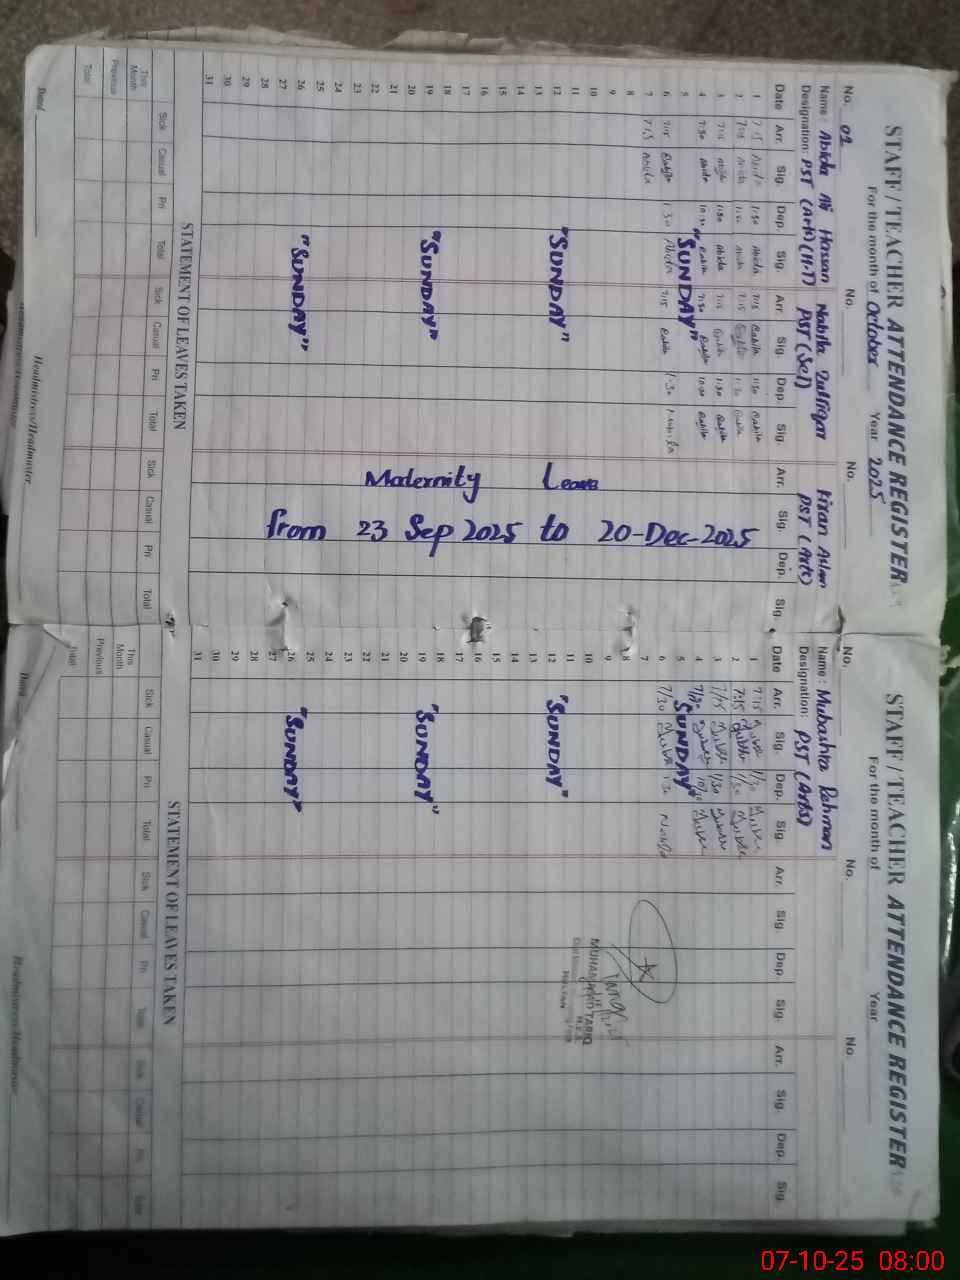 STAFF / TEACHER ATTENDANCE REGISTER
For the month of October Year 2025
No. 01 No. No.
Name : Abida Ali Hassan Nabila Zulfiqar Kiran Aslam
Designation: PST (Arts) (H.T) PST (Sci) PST (Arts)
Date Arr. Sig. Dep. Sig. Arr. Sig. Dep. Sig. Arr. Sig. Dep. Sig.
1 7:15 Abida 1:30 Abida 7:15 Nabila 1:30 Nabila
2 7:15 Abida Abida 7:15 Nabila 1:30 Nabila
3 7:15 Abida 1:30 Abida 7:15 Nabila 1:30 Nabila
4 7:30 Abida 10:30 7:30 Nabila 10:30 Nabila
5 "SUNDAY"
6 7:15 1:30 Abida 7:15 Nabila 1:30 Nabila
7 7:15 Abida
8
9
10
11
12 "SUNDAY"
13
14
15
16
17
18
19 "SUNDAY"
20
21
22
23
24
25
26 "SUNDAY"
27
28
29
30
31
Maternity Leave
from 23 Sep 2025 to 20-Dec-2025
STATEMENT OF LEAVES TAKEN
Sick Casual Pri Total Sick Casual Pri Total Sick Casual Pri Total
This Month
Previous
Total
Dated
Headmistress/Headmaster
STAFF / TEACHER ATTENDANCE REGISTER
For the month of Year
No. No. No.
Name : Mubashra Rehman
Designation: PST (Arts)
Date Arr. Sig. Dep. Sig. Arr. Sig. Dep. Sig. Arr. Sig. Dep. Sig.
1 7:15 1/30
2 7:15 1/30
3 7/15 1/30
4 7/30 10/30
5 "SUNDAY"
6 7/30 1:30
7
8
9
10
11
12 "SUNDAY"
13
14
15
16
17
18
19 "SUNDAY"
20
21
22
23
24
25
26 "SUNDAY"
27
28
29
30
31
MUHAMMAD TARIQ
M.E.A
MULTAN
STATEMENT OF LEAVES TAKEN
Sick Casual Pri Total Sick Casual Pri Total Sick Casual Pri Total
This Month
Previous
Total
Dated
Headmistress/Headmaster
07-10-25 08:00